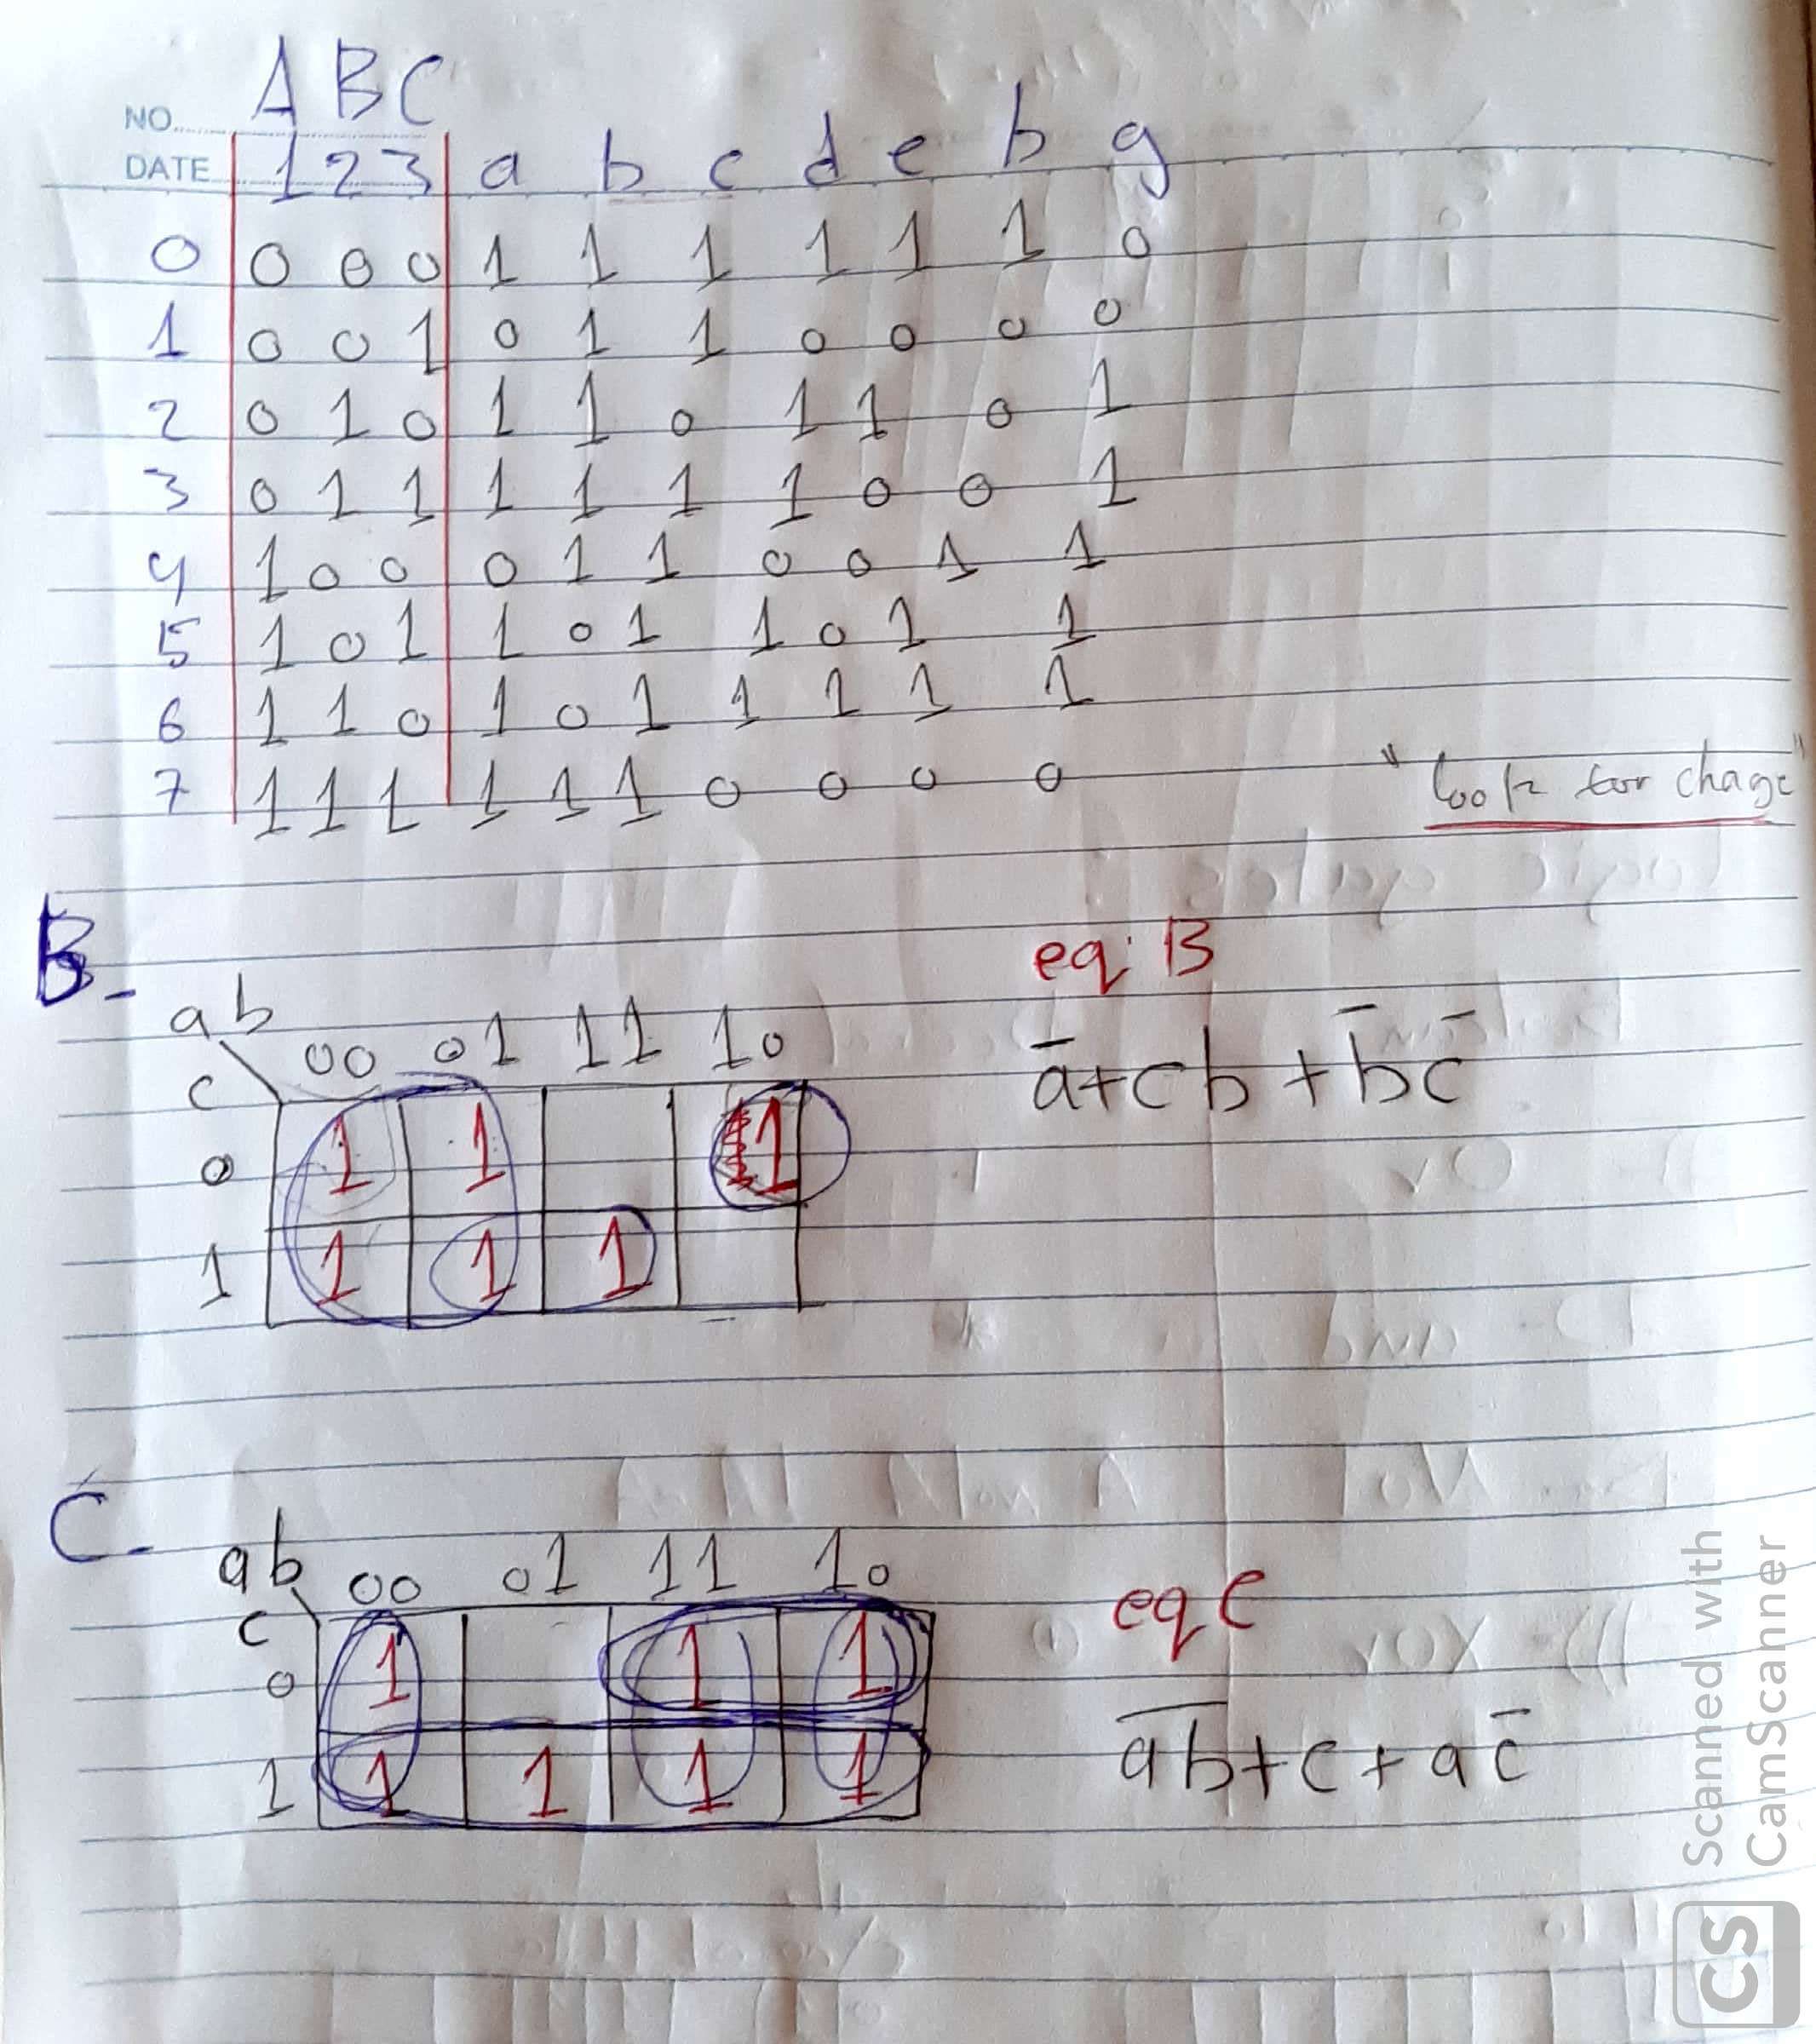 A B C
NO.
DATE 1 2 3 a b c d e b g
0 0 0 0 1 1 1 1 1 1 0
1 0 0 1 0 1 1 0 0 0 0
2 0 1 0 1 1 0 1 1 0 1
3 0 1 1 1 1 1 1 0 0 1
4 1 0 0 0 1 1 0 0 1 1
5 1 0 1 1 0 1 1 0 1 1
6 1 1 0 1 0 1 1 1 1 1
7 1 1 1 1 1 1 0 0 0 0
"look for chage"
B.
eq: B
ab 00 01 11 10
c
a̅+cb+b̅c̅
0 1 1 1
1 1 1 1
C.
ab 00 01 11 10
c
eq C
0 1 1 1
a̅b̅+c+ac̅
1 1 1 1 1
Scanned with
CamScanner
CS